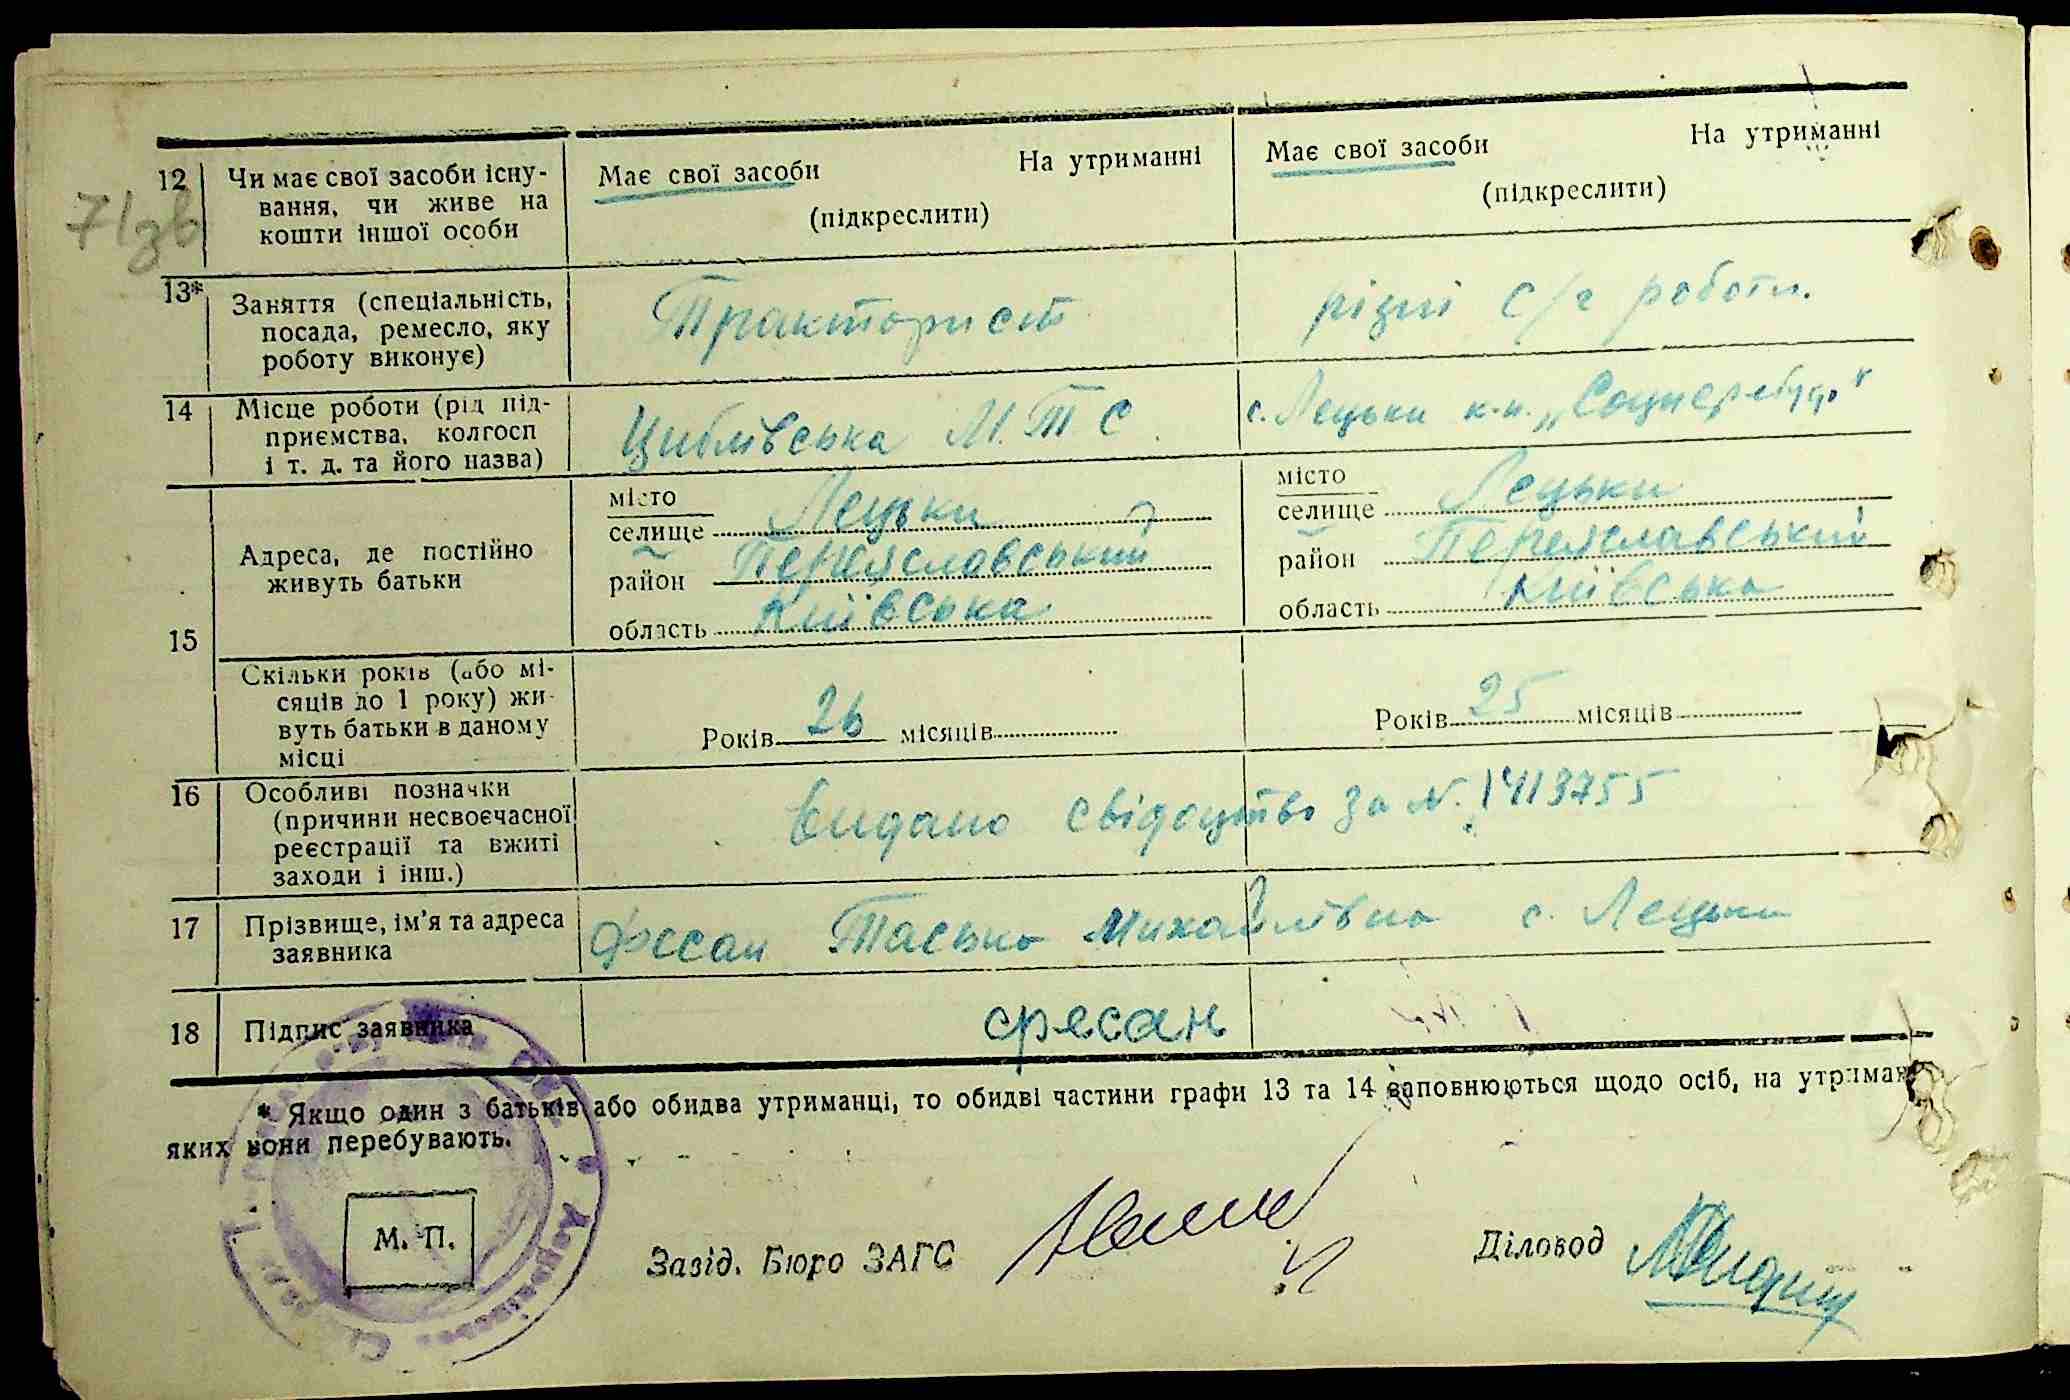 71зв
12 Чи має свої засоби існу-
вання, чи живе на
кошти іншої особи
Має свої засоби На утриманні
(підкреслити)
Має свої засоби На утриманні
(підкреслити)
13* Заняття (спеціальність,
посада, ремесло, яку
роботу виконує)
Тракторист
різні с/г роботи.
14 Місце роботи (рід під-
приємства, колгосп
і т. д. та його назва)
Циблівська М.Т.С.
с. Лецьки к-п.
15 Адреса, де постійно
живуть батьки
місто
селище Лецьки
район Переяславський
область Київська
місто
селище Лецьки
район Переяславський
область Київська
Скільки років (або мі-
сяців до 1 року) жи-
вуть батьки в даному
місці
Років 26 місяців
Років 25 місяців
16 Особливі позначки
(причини несвоєчасної
реєстрації та вжиті
заходи і інш.)
Видано свідоцтво за N. 1413755
17 Прізвище, ім'я та адреса
заявника
Фесан Таська Михайлівна с. Лецьки
18 Підпис заявника
фесан
* Якщо один з батьків або обидва утриманці, то обидві частини графи 13 та 14 заповнюються щодо осіб, на утриман
яких вони перебувають.
М. П.
Завід. Бюро ЗАГС
Діловод